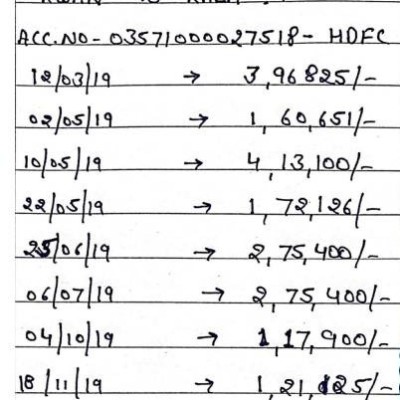 ACC.NO - 03571000027518 - HDFC
12/03/19 → 3,96825/-
02/05/19 → 1,60,651/-
10/05/19 → 4,13,100/-
22/05/19 → 1,72,126/-
25/06/19 → 2,75,400/-
06/07/19 → 2,75,400/-
04/10/19 → 1,17,900/-
18/11/19 → 1,21,125/-